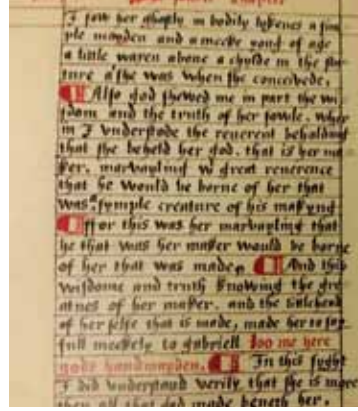 I saw her ghostly in bodily lykenes a sim
ple mayden and a meeke yong of age
a little waxen above a chylde in the sta
ture as she was when she conceivede.
Also god shewed me in part the wi
sdom and the truth of her sowle. wher
in I understode the reverent beholding
that she beheld her god. that is her ma
ker. marvayling w great reverence
that he would be borne of her that
was a symple creature of his makyng
ffor this was her marvayling that
he that was her maker would be borne
of her that was made. And this
wisdome and truth knowing the gre
atnes of her maker. and the littlehead
of her selfe that is made, made her to say
full meekely to gabriell loo me here
gods handmayden. In this syght
I did understand verily that she is more
then all that god made beneth her.